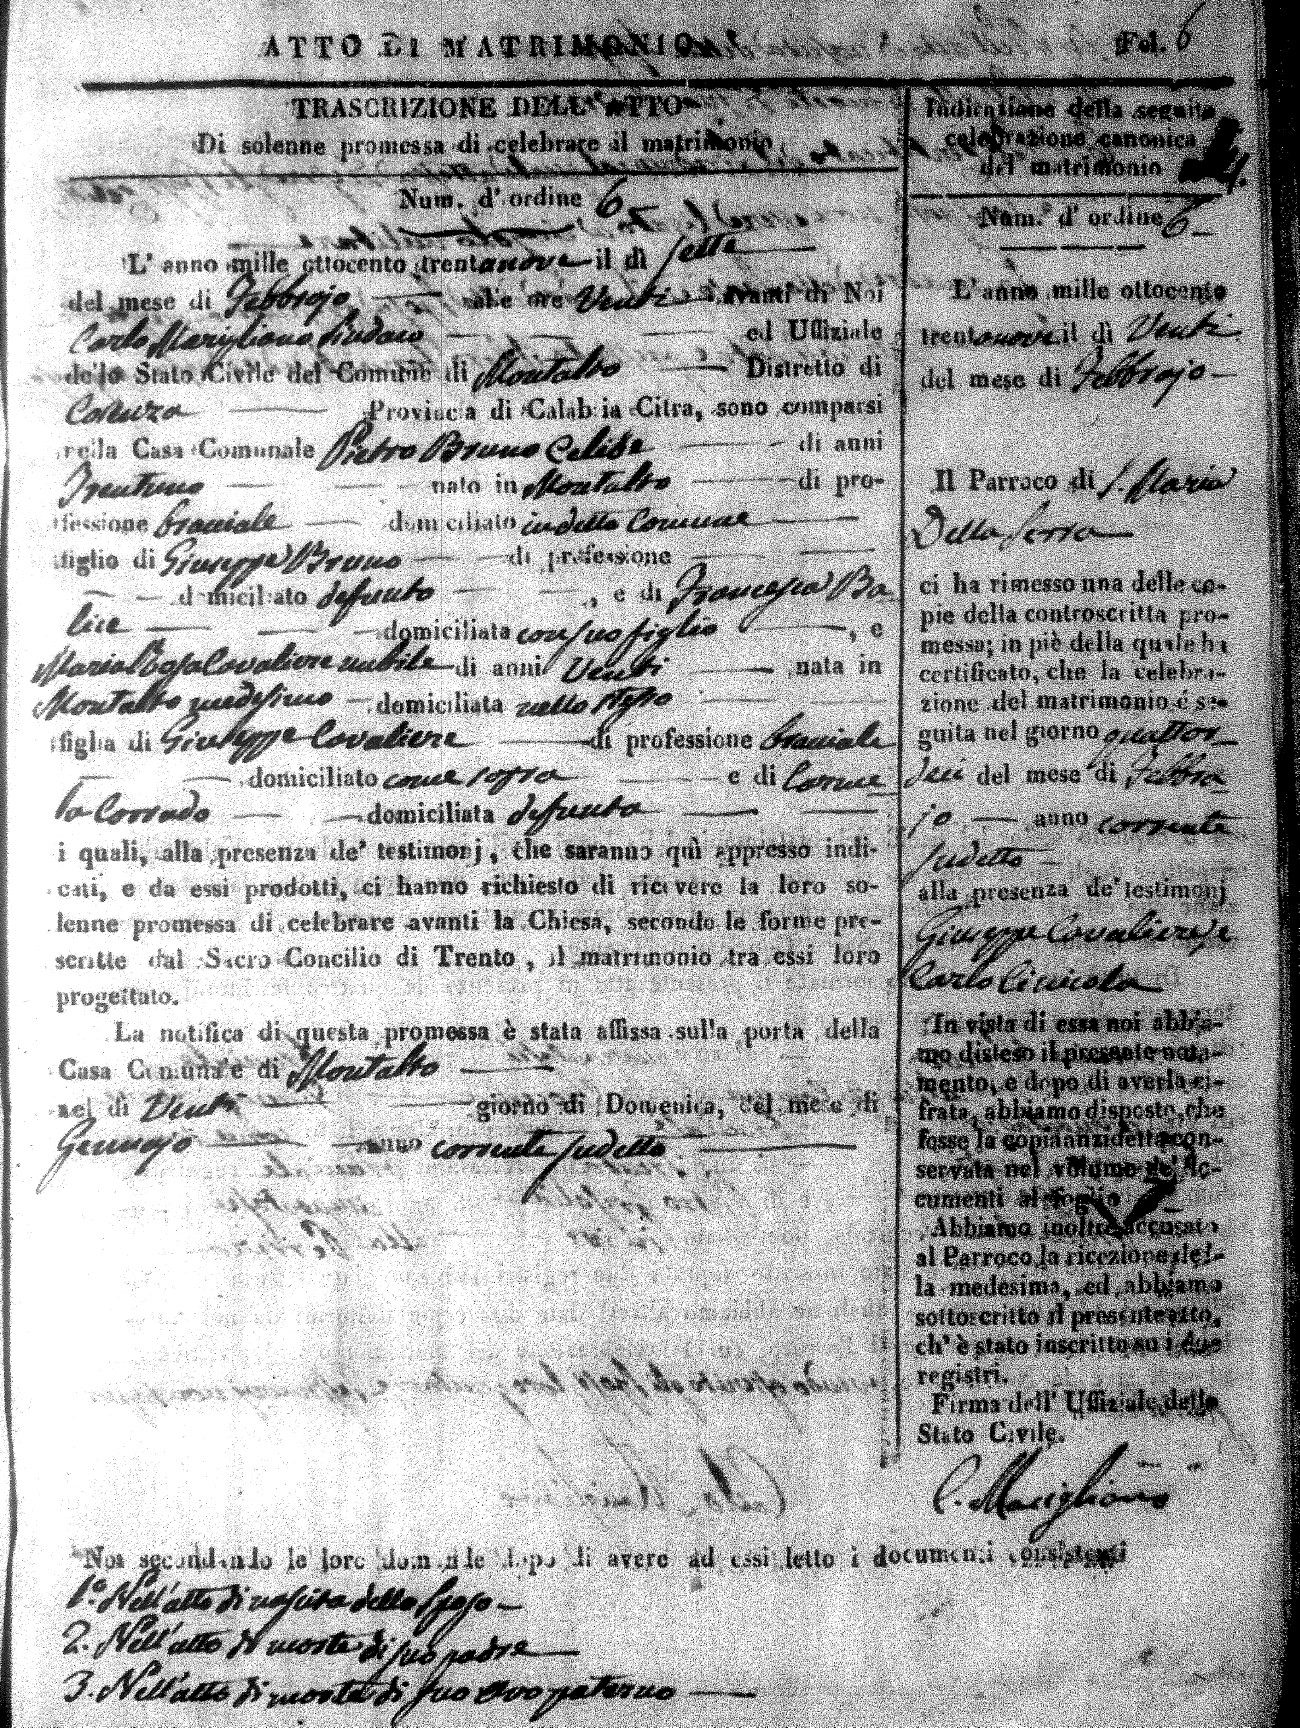 ATTO DI MATRIMONIO
Fol. 6
TRASCRIZIONE DELL' ATTO
Di solenne promessa di celebrare il matrimonio
Num. d' ordine 6
L' anno mille ottocento trentanove il dì sette
del mese di Febbrajo alle ore Venti avanti di Noi
Carlo Marigliano Sindaco ed Uffiziale
dello Stato Civile del Comune di Montalto Distretto di
Cosenza Provincia di Calabria Citra, sono comparsi
nella Casa Comunale Pietro Bruno Celibe di anni
Trentuno nato in Montalto di pro-
fessione bracciale domiciliato in detto Comune
figlio di Giuseppe Bruno di professione
domiciliato defunto, e di Francesca Ba
lice domiciliata con suo figlio, e
Maria Rosa Cavaliere nubile di anni Venti nata in
Montalto medesimo domiciliata nello stesso
figlia di Giuseppe Cavaliere di professione bracciale
domiciliato come sopra e di Carme
la Corrado domiciliata defunta
i quali, alla presenza de' testimonj, che saranno quì appresso indi-
cati, e da essi prodotti, ci hanno richiesto di ricevere la loro so-
lenne promessa di celebrare avanti la Chiesa, secondo le forme pre-
scritte dal Sacro Concilio di Trento, il matrimonio tra essi loro
progettato.
La notifica di questa promessa è stata affissa sulla porta della
Casa Comunale di Montalto
nel dì Venti giorno di Domenica, del mese di
Gennajo anno corrente sudetto
Indicazione della seguita
celebrazione canonica
del matrimonio
Num. d' ordine 6
L' anno mille ottocento
trentanove il dì Venti
del mese di Febbrajo
Il Parroco di S. Maria
Della Serra
ci ha rimesso una delle co-
pie della controscritta pro-
messa; in piè della quale ha
certificato, che la celebra-
zione del matrimonio è se-
guita nel giorno quattor-
deci del mese di Febbra
jo anno corrente
sudetto
alla presenza de' testimonj
Giuseppe Cavaliere, e
Carlo
In vista di essa noi abbia-
mo disteso il presente nota-
mento, e dopo di averla ci-
frata, abbiamo disposto, che
fosse la copia anzidetta con-
servata nel volume de' do-
cumenti al foglio
Abbiamo inoltre accusato
al Parroco la ricezione del-
la medesima, ed abbiamo
sottoscritto il presente atto,
ch' è stato inscritto su i due
registri.
Firma dell' Uffiziale dello
Stato Civile.
C. Marigliano
Noi secondando le loro domande dopo di avere ad essi letto i documenti consistenti
1.º Nell'atto di nascita dello sposo
2. Nell'atto di morte di suo padre
3. Nell'atto di morte di suo avo paterno